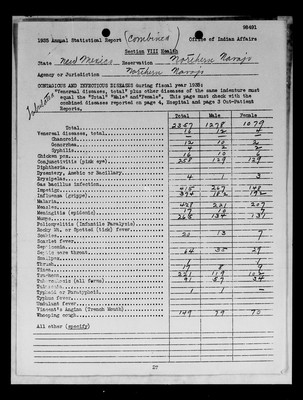 98491
1935 Annual Statistical Report (Combined) Office of Indian Affairs
Section VIII Health
State New Mexico Reservation Northern Navajo
Agency or Jurisdiction Northern Navajo
CONTAGIOUS AND INFECTIOUS DISEASES during fiscal year 1935:
"Venereal diseases, total" plus other diseases of the same indenture must
equal the "Total" "Male" and "Female". This page must check with the
combined diseases reported on page 4, Hospital and page 3 Out-Patient
Reports.
Total Male Female
Total 2357 1278 1079
Venereal diseases, total 16 12 4
Chancroid
Gonorrhea 12 10 2
Syphilis 4 2 2
Chicken pox 16 10
Conjunctivitis (pink eye) 258 129 129
Diphtheria
Dysentery, Amebic or Bacillary
Erysipelas 4 1 3
Gas bacillus infection
Impetigo 415 267 148
Influenza (grippe)
Malaria
Measles 428 221 207
Meningitis (epidemic)
Mumps 265 134 131
Poliomyelitis (Infantile Paralysis)
Rocky Mt. or Spotted (tick) fever
Scabies 20 13 7
Scarlet fever
Septicemia
Septic sore throat 64 35 29
Smallpox
Thrush
Tinea 17 8 9
Trachoma 221 119 102
Tuberculosis (all forms) 91 57 34
Tularemia
Typhoid or Paratyphoid 1 1 —
Typhus fever
Undulant fever
Vincent's Angina (Trench Mouth)
Whooping cough 149 79 70
All other (specify)
27